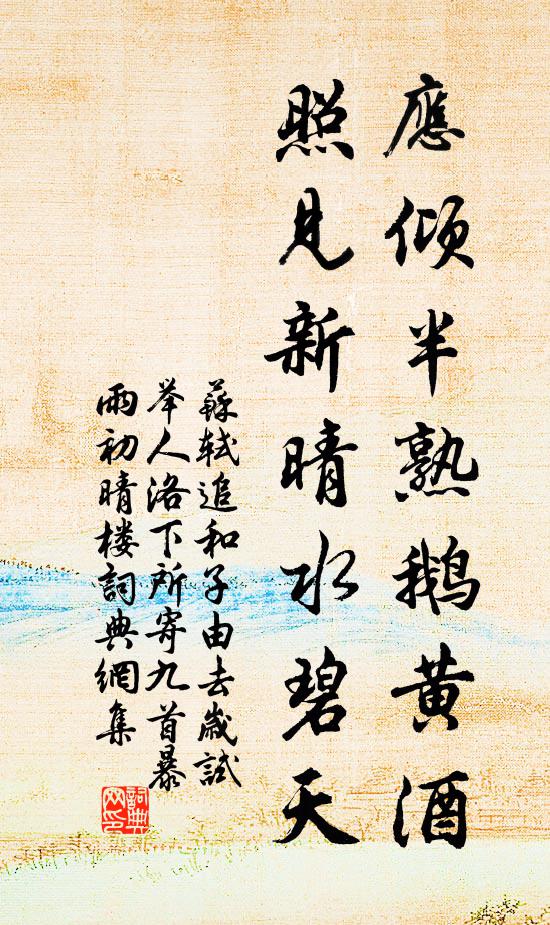 應倾半熟鹅黄酒
照見新晴水碧天
蘇軾追和子由去歲試
举人洛下所寄九首暴
雨初晴楼詞典網集
詞典
网印